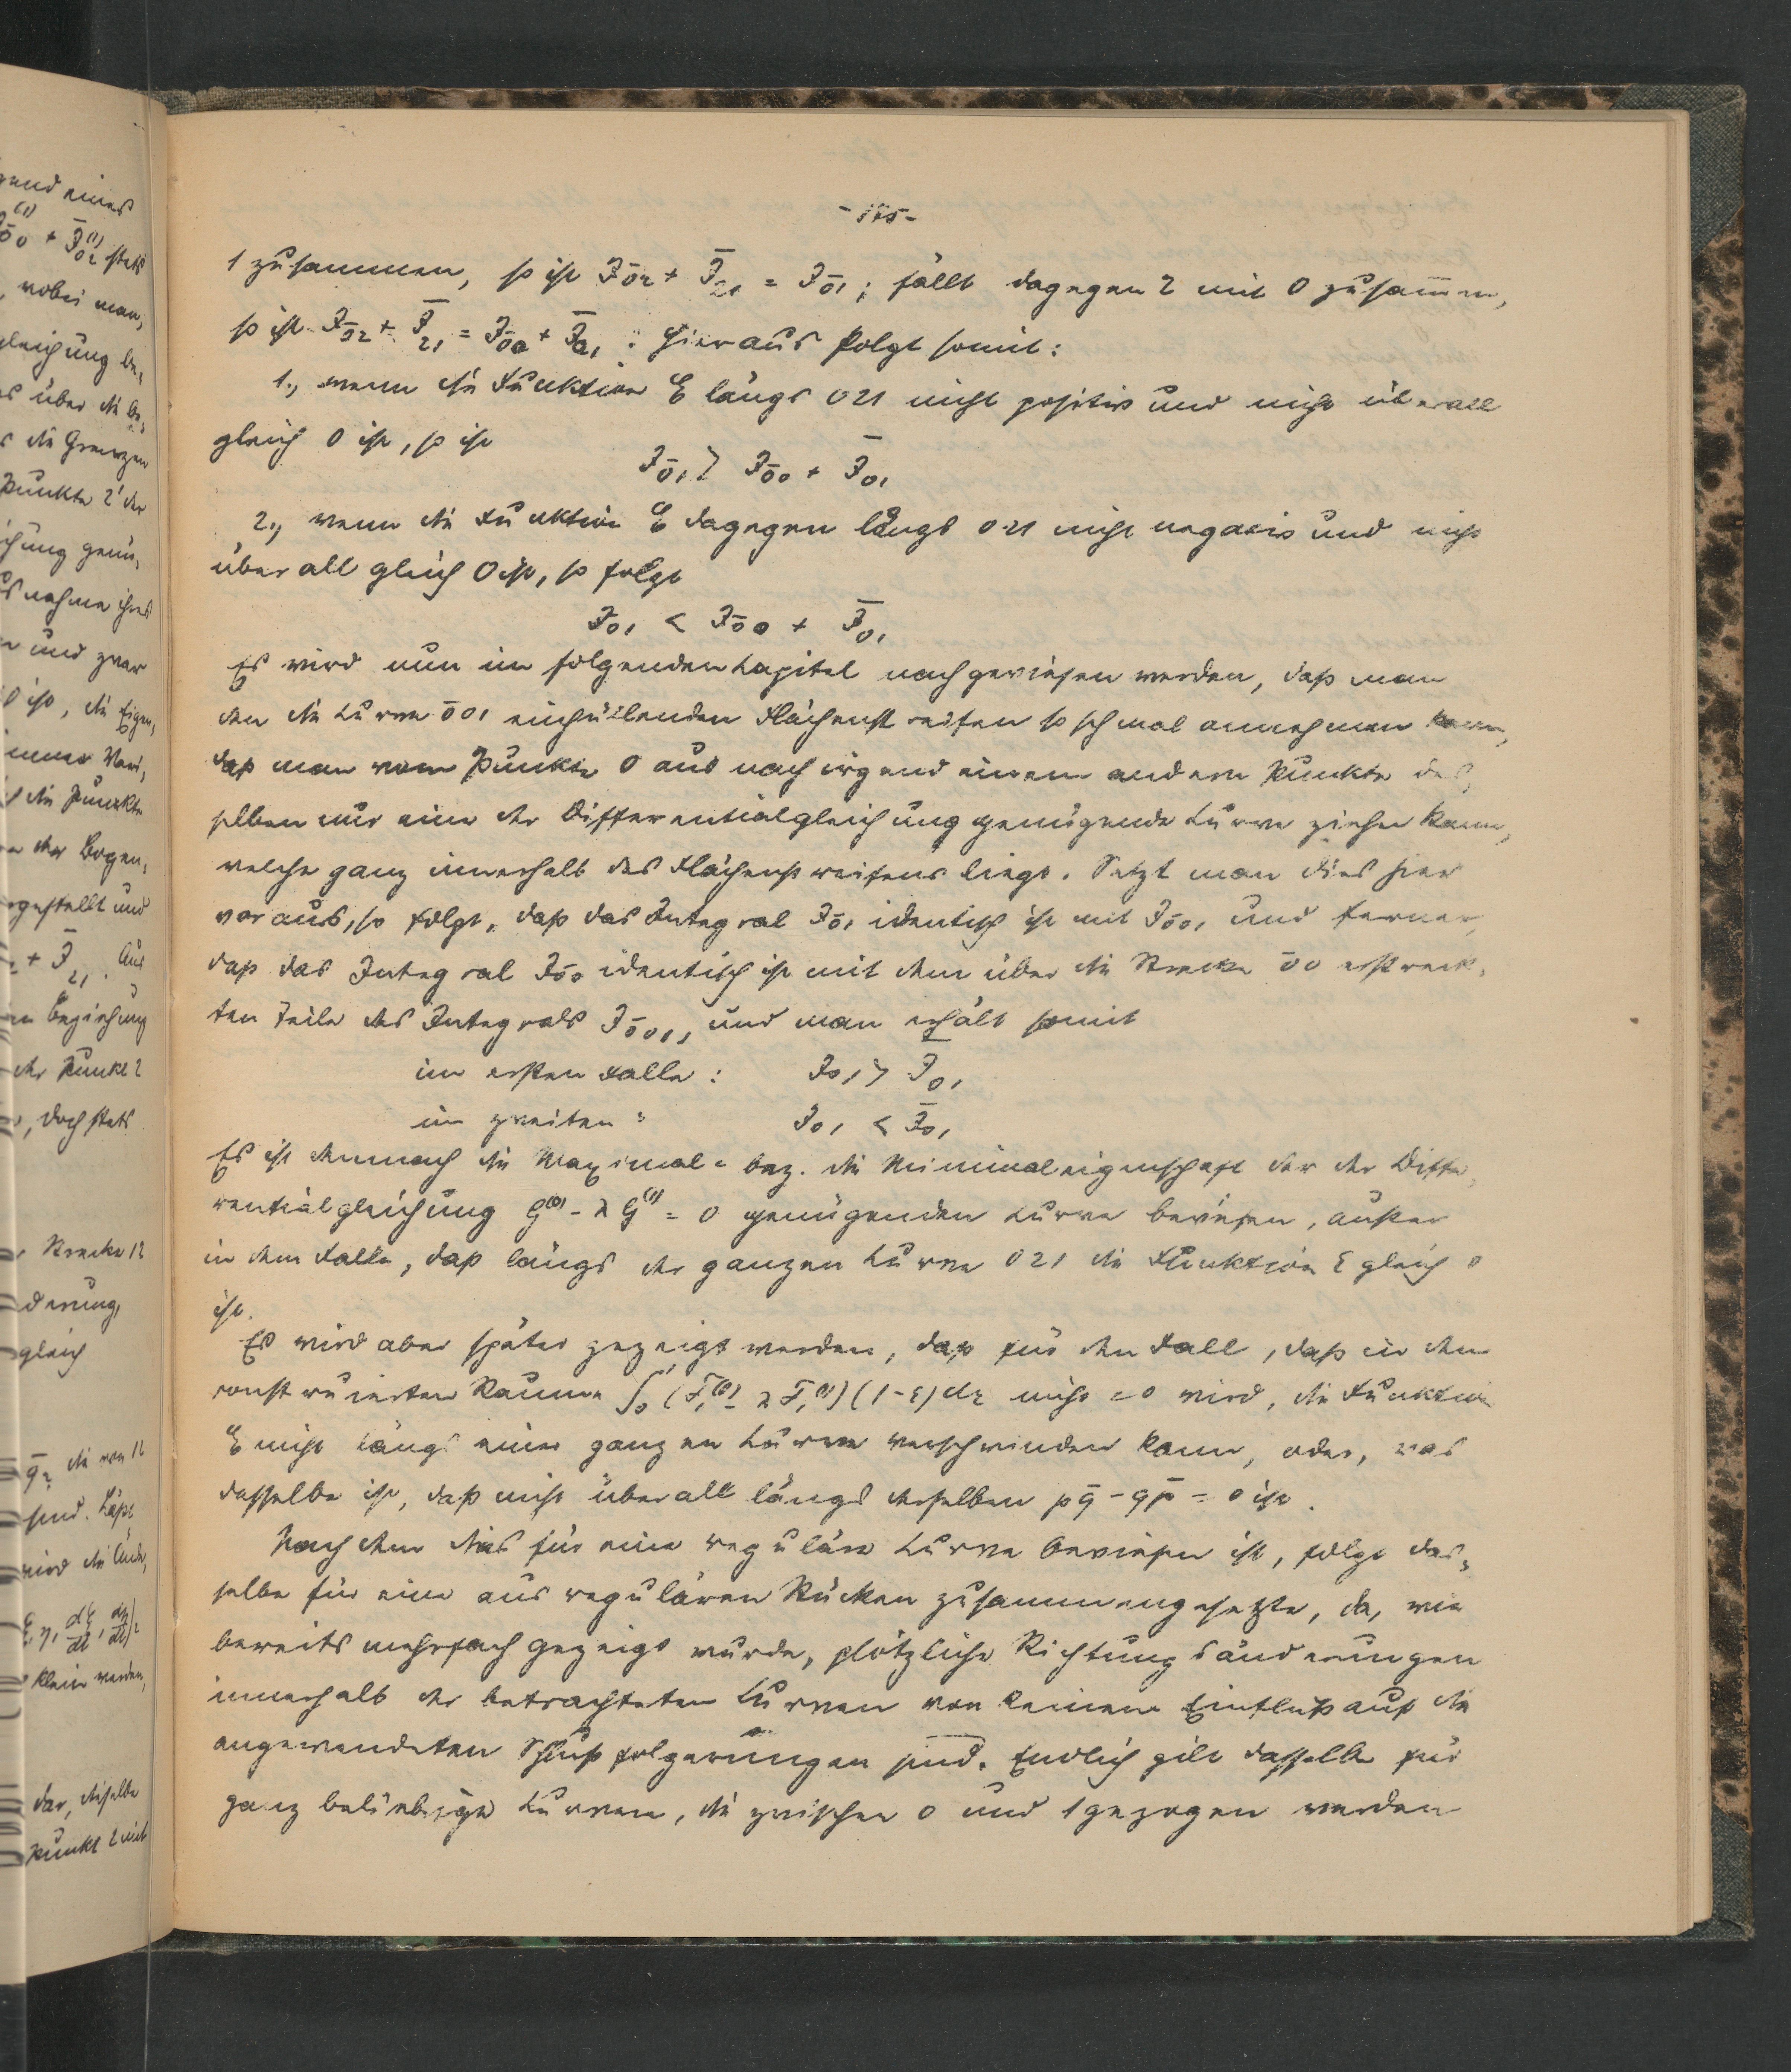 1 zusammen, so ist J0̄2 + J̄21 = J0̄1; fällt dagegen 2 mit 0 zusammen,
so ist J0̄2 + J̄21 = J0̄0 + J̄01: Hieraus folgt somit:
1., wenn die Funktion E längs 021 nicht positiv und nicht überall
gleich 0 ist, so ist
J0̄1 > J0̄0 + J̄01
2., wenn die Funktion E dagegen längs 021 nicht negativ und nicht
überall gleich 0 ist, so folgt
J0̄1 < J0̄0 + J̄01
Es wird nun im folgenden Kapitel nachgewiesen werden, daß man
den die Kurve 0̄01 einhüllenden Flächenstreifen so schmal annehmen kann,
daß man vom Punkte 0 aus nach irgend einem andern Punkte des,
selben nur eine der Differentialgleichung genügende Kurve ziehen kann,
welche ganz innerhalb des Flächenstreifens liegt. Setzt man dies hier
voraus, so folgt, daß das Integral J0̄1 identisch ist mit J0̄01 und ferner,
daß das Integral J0̄0 identisch ist mit dem über die Strecke 0̄0 erstreck,
ten Teile des Integrals J0̄01, und man erhält somit
im ersten Falle: J01 > J̄01
im zweiten " J01 < J̄01
Es ist demnach die Maximal= bez. die Minimaleigenschaft der der Diffe,
rentialgleichung G⁽⁰⁾ - λ G⁽¹⁾ = 0 genügenden Kurve bewiesen, außer
in dem Falle, daß längs der ganzen Kurve 021 die Funktion E gleich 0
ist.
Es wird aber später gezeigt werden, daß für den Fall, daß in dem
konstruierten Raume ∫₀¹ (F₁⁽⁰⁾ - λ F₁⁽¹⁾)(1-ε)dε nicht = 0 wird, die Funktion
E nicht längs einer ganzen Kurve verschwinden kann, oder, was
dasselbe ist, daß nicht überall längs derselben pq̄ - qp̄ = 0 ist.
Nachdem dies für eine reguläre Kurve bewiesen ist, folgt das,
selbe für eine aus regulären Stücken zusammengesetzte, da, wie
bereits mehrfach gezeigt wurde, plötzliche Richtungsänderungen
innerhalb der betrachteten Kurven von keinem Einfluß auf die
angewendeten Schlußfolgerungen sind. Endlich gilt dasselbe für
ganz beliebige Kurven, die zwischen 0 und 1 gezogen werden